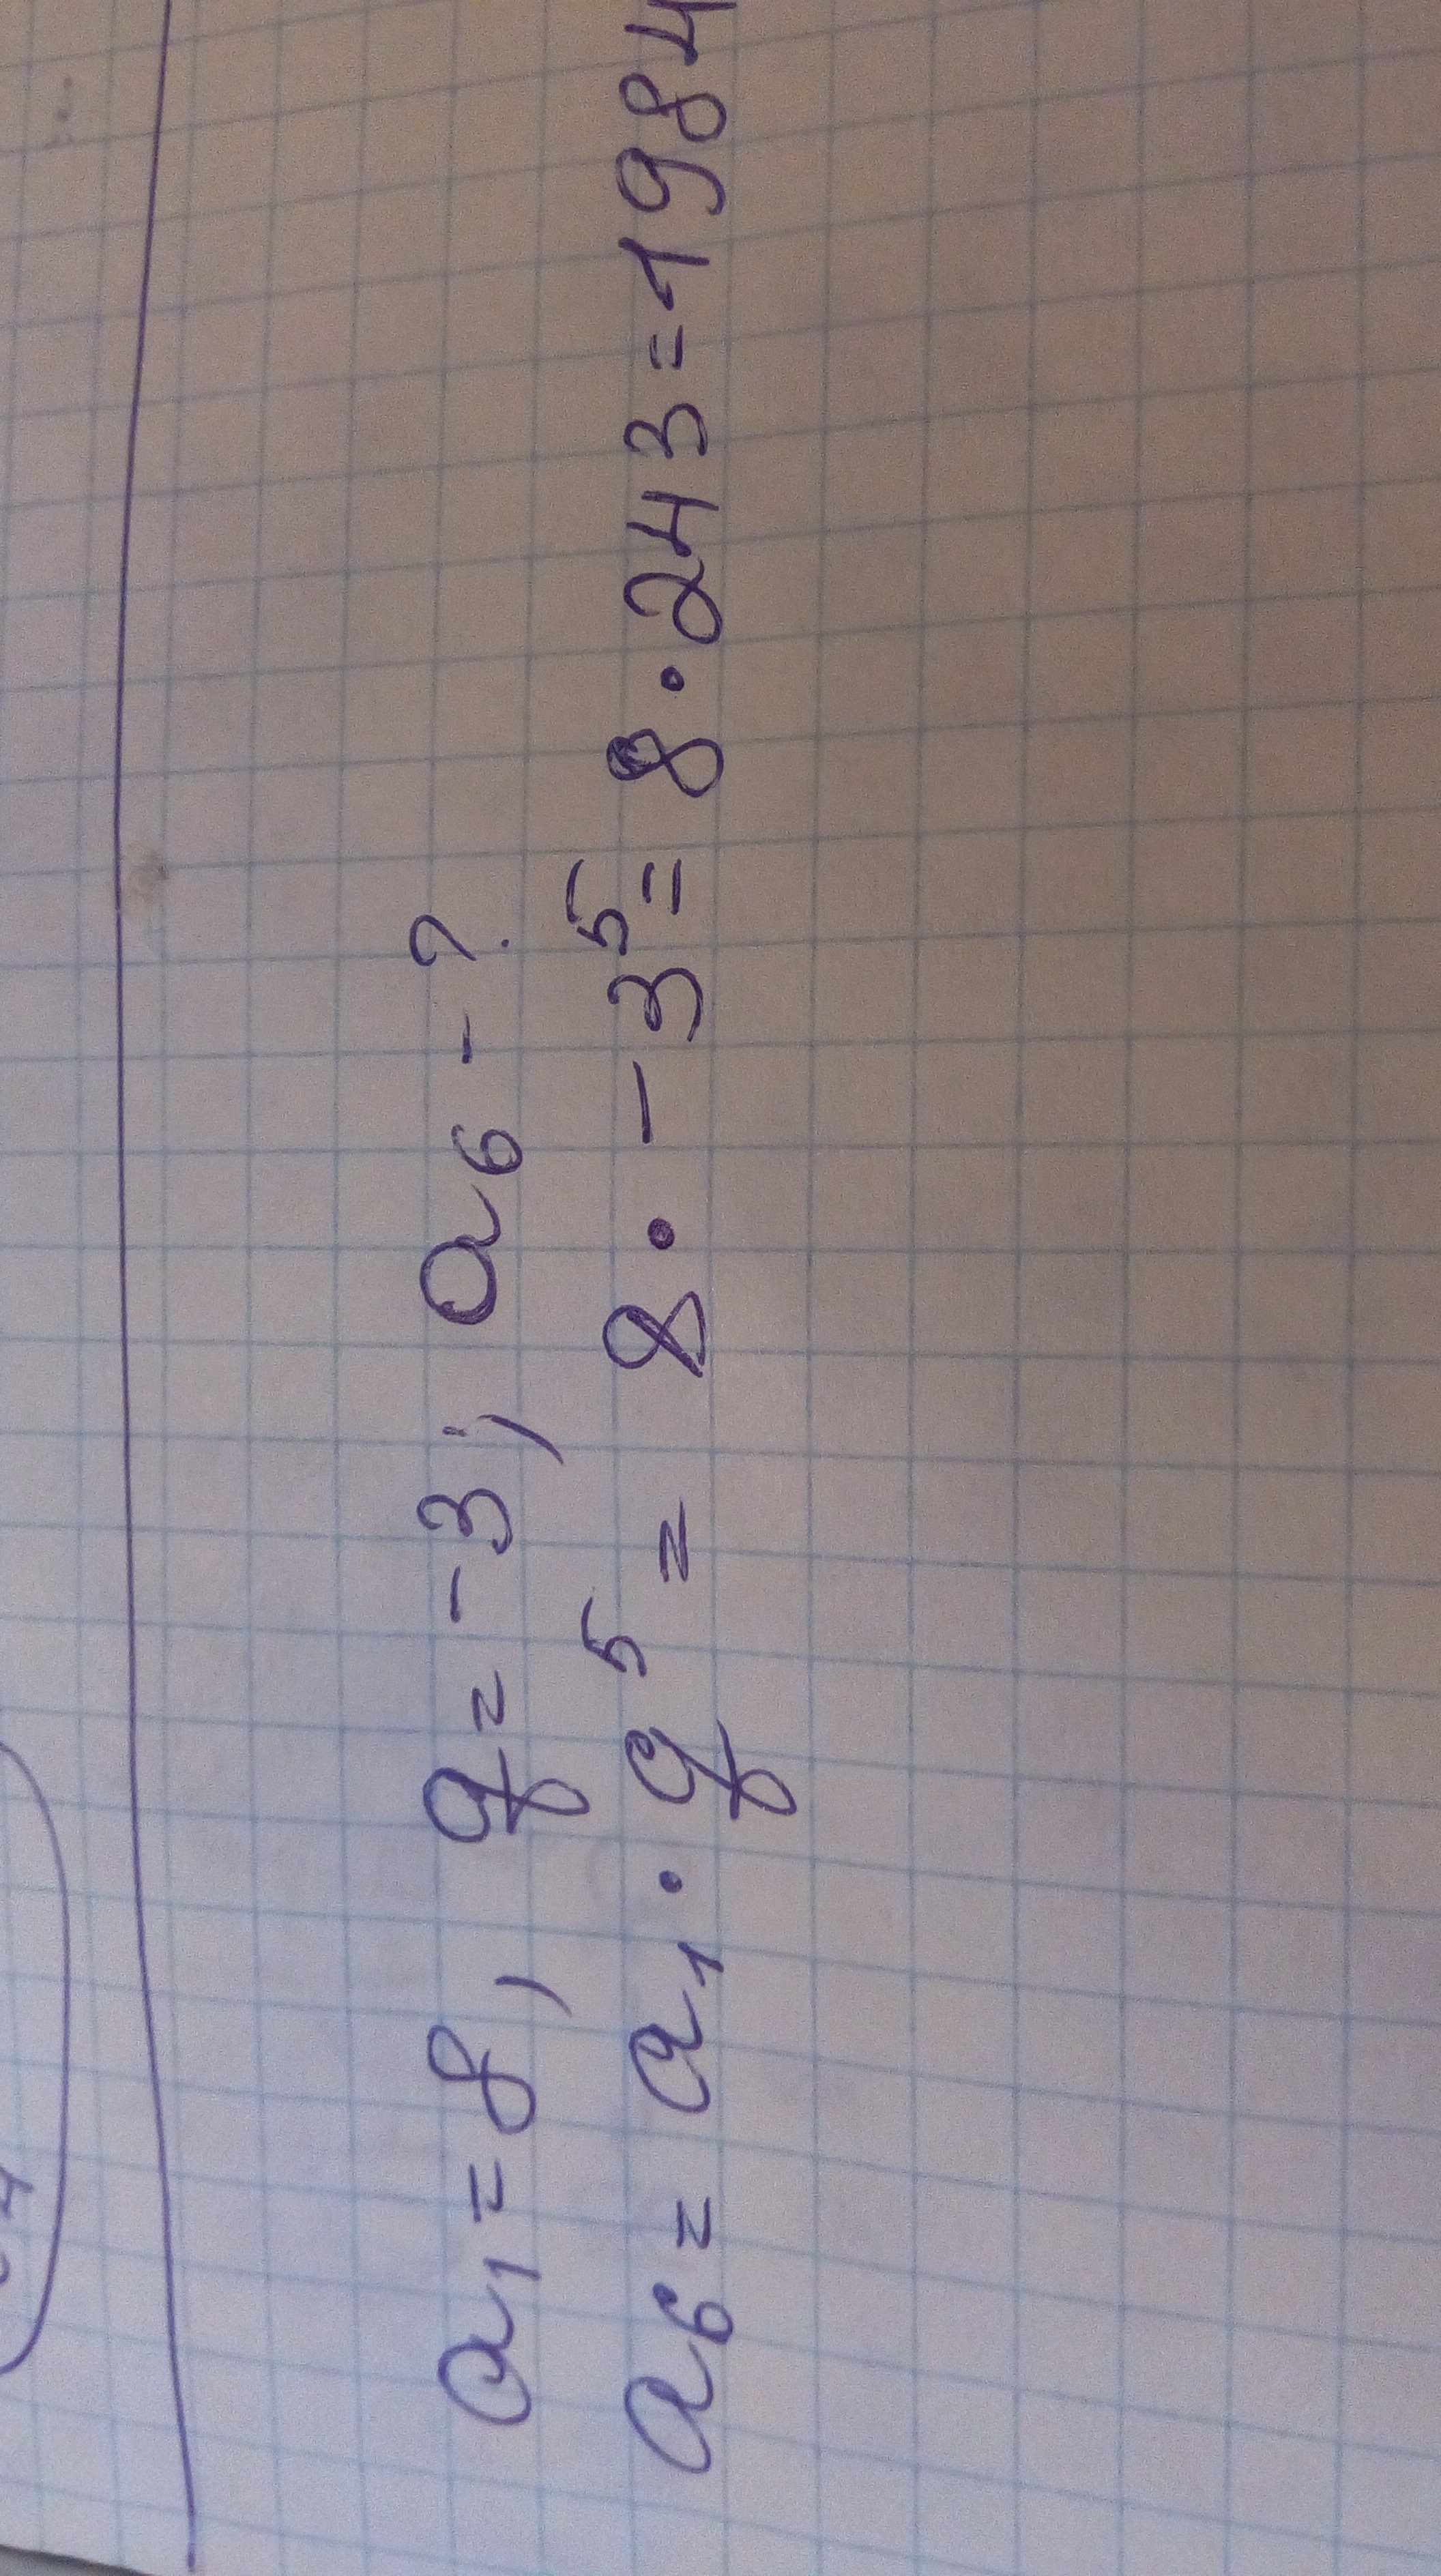 a₁=8, q=-3; a₆-?
a₆= a₁·q⁵ = 8·-3⁵=8·243=1984